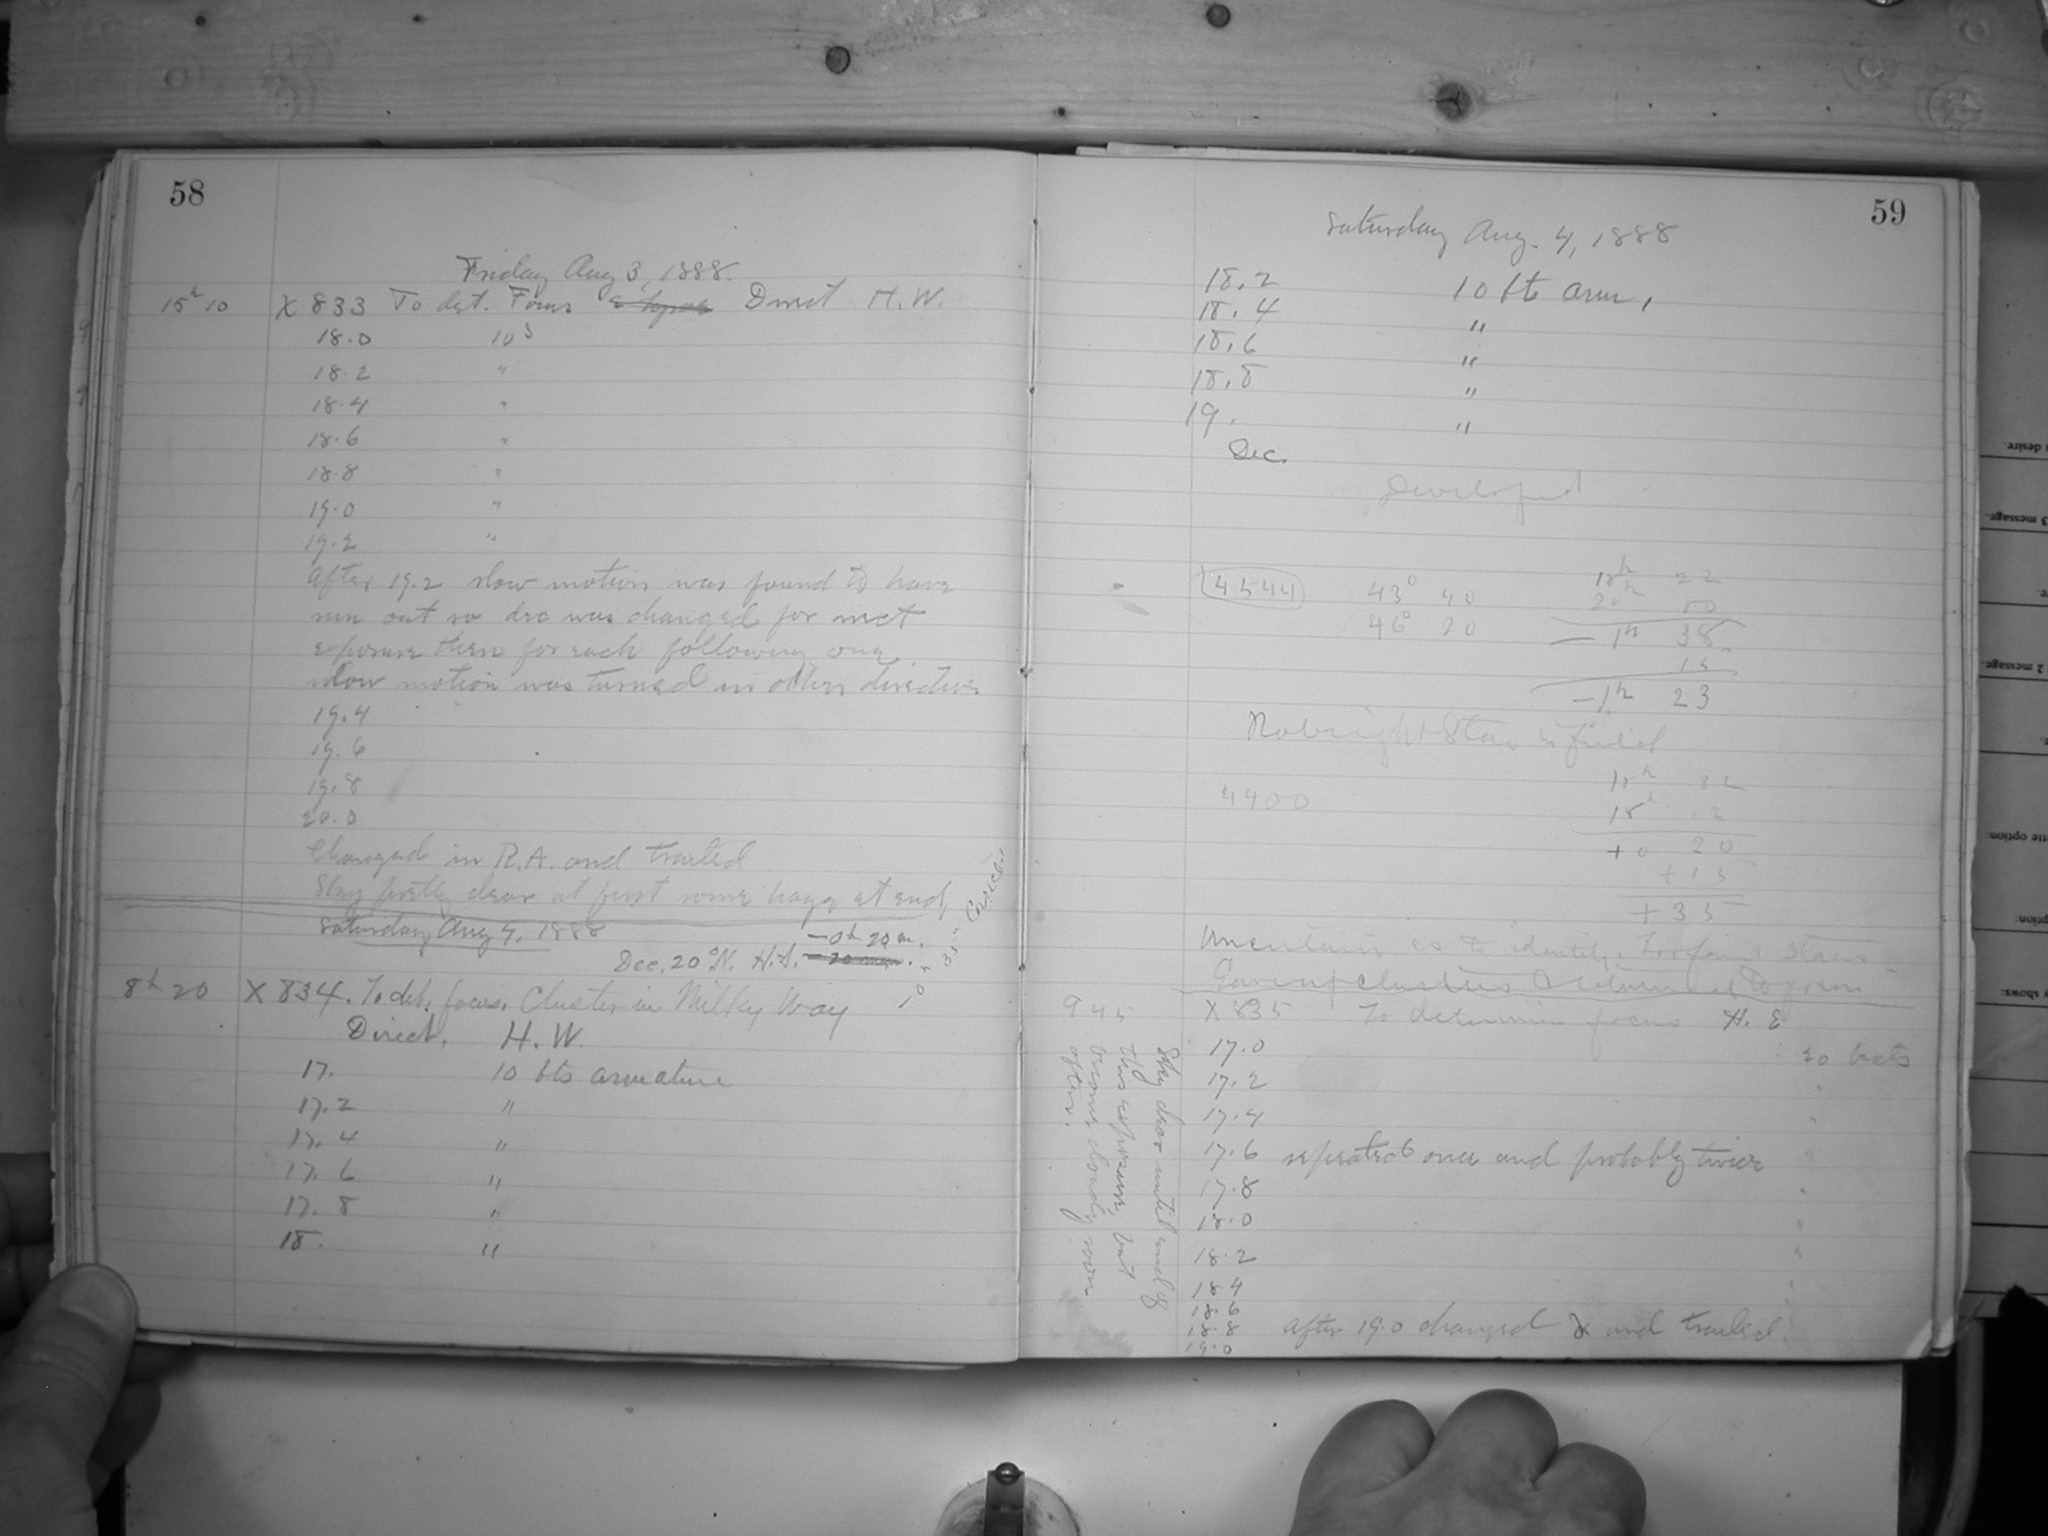 58
Friday Aug 3, 1888.
15h 10 X 833 To det. Focus Direct H.W.
18.0 10s
18.2 "
18.4 "
18.6 "
18.8 "
19.0 "
19.2 "
After 19.2 slow motion was found to have
run out so dec was changed for next
exposure then for each following one
slow motion was turned in other direction
19.4
19.6
19.8
20.0
Changed in R.A. and trailed
Sky pretty clear at first some hazy at end,
Saturday Aug 4, 1888
Dec. 20° N. H.A. -0h 20m.
8h 20 X 834. To det. focus, Cluster in Milky Way
Direct, H.W.
17. 10 bts armature
17.2 "
17.4 "
17.6 "
17.8 "
18. "
59
Saturday Aug. 4, 1888
18.2 10 bts arm,
18.4 "
18.6 "
18.8 "
19. "
Dec.
Developed
4544 43° 40 18h 22
46° 20 20h 00
- 1h 38
15
-1h 23
No bright Star in field
4400
+0 20
+15
+35
Uncertain as to identity. Too faint stars
945 X 835 To determine focus H. E
17.0 20 beats
17.2 "
17.4 "
17.6 repeated once and probably twice "
17.8 "
18.0 "
18.2 "
18.4 "
18.6
18.8 after 19.0 changed and trailed.
19.0
Sky clear until end of
this exposure, but
became cloudy soon
after.